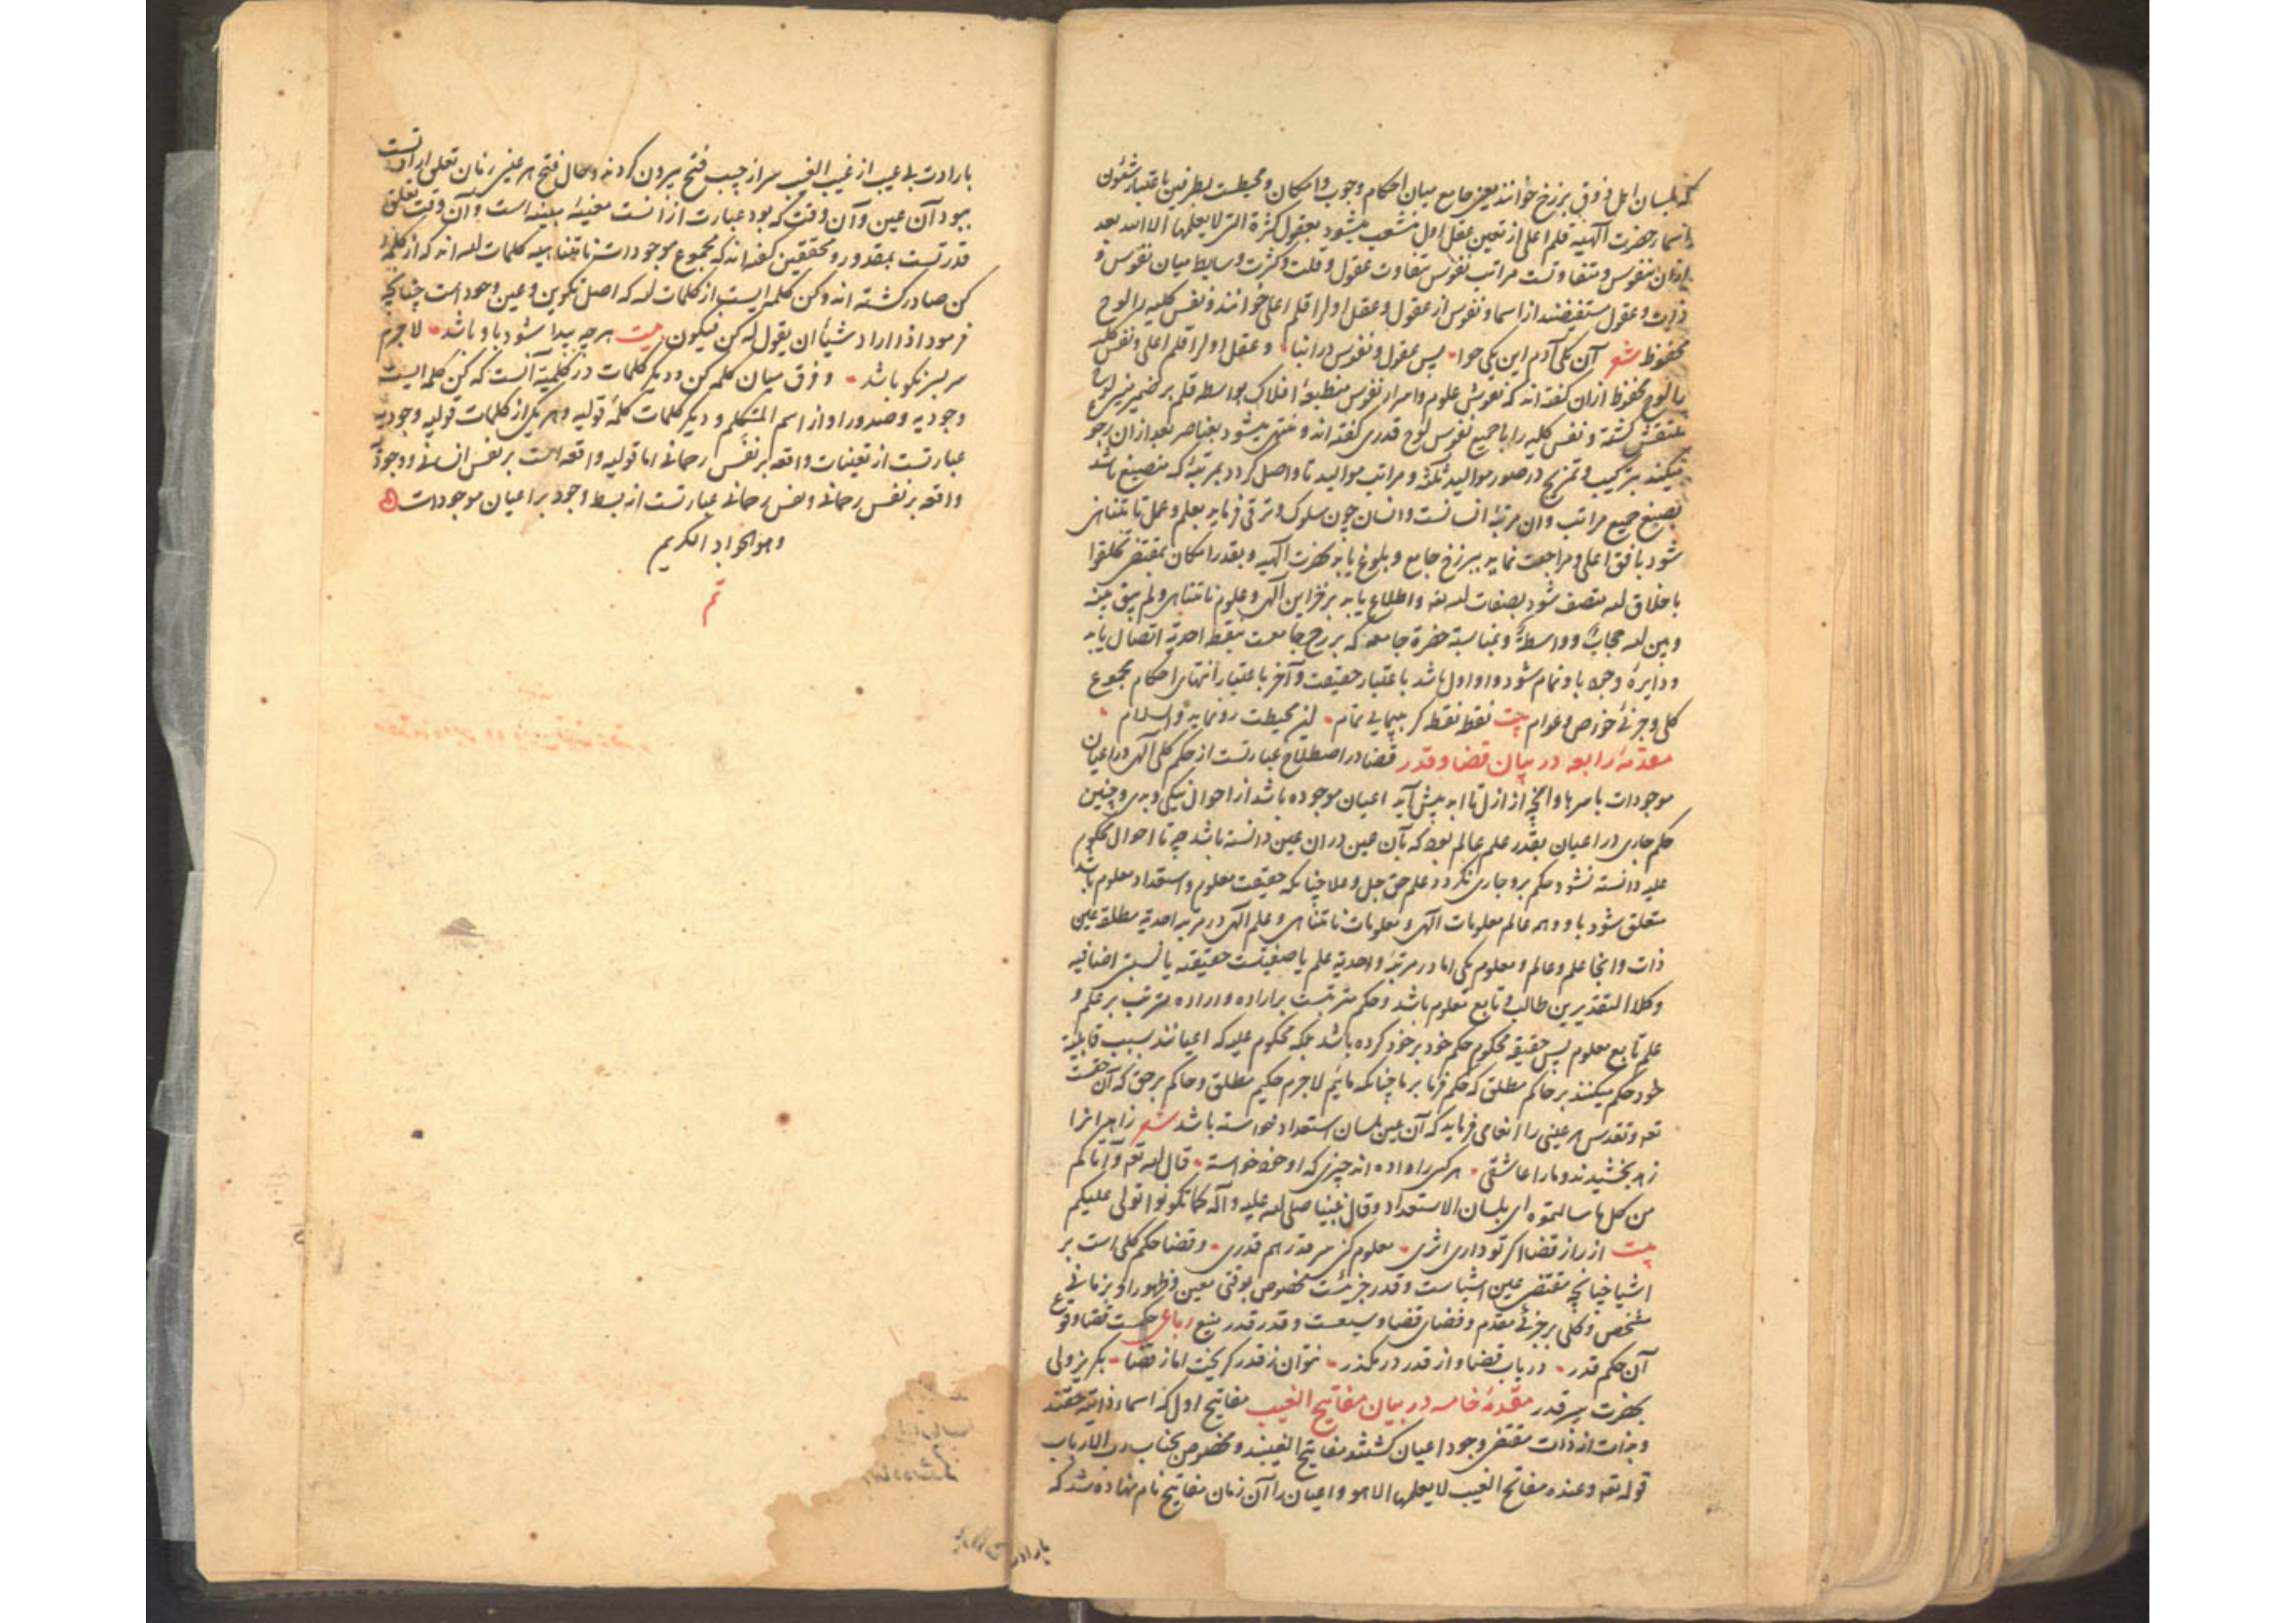 که بلسان اهل ذوق برزخ خوانند یعنی جامع میان احکام وجوب و امکان و محیطست بطرفین باعتبار شئون
اسماء حضرت الهیه قلم اعلی از تعین عقل اول منشعب میشود بعقول کثرة التی لا یعلمها الا الله بعد
ازان بنفوس و متفاوتست مراتب نفوس بتفاوت عقول و قلت و کثرت وسایط میان نفوس و
ذات و عقول مستفیضند از اسما و نفوس از عقول و عقل اول را قلم اعلی خوانند و نفس کلیه را لوح
محفوظ شعر آن یکی آدم این یکی حوا پس عقول و نفوس در ابنا و عقل اول را قلم اعلی و نفس کلیه
را لوح محفوظ ازان گفته اند که نقوش علوم و اسرار نفوس منطبعهٔ افلاک بواسطه قلم بر ضمیر منیر لوح
منتقش گشته و نفس کلیه را با جمیع نفوس لوح قدری گفته اند و منتهی میشود بعناصر بعد ازان رجوع
میکند بترکیب و تمزیج در صور موالید ثلثه و مراتب موالید تا واصل گردد بمرتبهٔ که منصبغ باشد
بصبغ جمیع مراتب و ان مرتبهٔ انسانست و انسان چون سلوک و ترقی فرماید بعلم و عمل تا متناهی
شود بافق اعلی و مراجعت نماید ببرزخ جامع و بلوغ یابد بحضرت الهیه و بقدر امکان بمقتضی تخلقوا
باخلاق الله متصف شود بصفات الله تعه و اطلاع یابد بر خزاین الهی و علوم نامتناهی و لم یبق بینه
و بین الله حجاب و واسطة و بمناسبة حضرة جامعه که برزخ جامعست بنقطه احدیة اتصال یابد
و دایرهٔ وجود باو تمام شود و او اول باشد باعتبار حقیقت و آخر باعتبار انتهای احکام مجموع
کلی و جزئی خواص و عوام بیت نقطه نقطه گر بپیمایی تمام این محیطت رو نماید والسلام
مقدمهٔ رابعه در بیان قضا و قدر قضا در اصطلاح عبارتست از حکم کلی الهی در اعیان
موجودات باسرها و آنچه از ازل تا ابد پیش آید اعیان موجوده باشد از احوال نیکی و بدی و چنین
حکم جاری در اعیان بقدر علم عالم بود که بآن عین دران عین دانسته باشد چه تا احوال محکوم
علیه دانسته نشود حکم برو جاری نگردد و علم حق جل و علا چنانکه حقیقت معلوم و استعداد معلوم باشد
متعلق شود باو و همه عالم معلومات الهی و معلومات نامتناهی و علم الهی در مرتبه احدیة مطلقه عین
ذات و انجا علم و عالم و معلوم یکی اما در مرتبهٔ واحدیة علم یا صفتیست حقیقیه یا نسبتی اضافیه
و کلا التقدیرین طالب و تابع معلوم باشد و حکم مترتبست بر اراده و اراده مترتب بر علم و
علم تابع معلوم پس حقیقه محکوم حکم خود بر خود کرده باشد بلکه محکوم علیه که اعیانند بسبب قابلیة
خود حکم میکنند بر حاکم مطلق که حکم فرما بر ما چنانکه مائیم لاجرم حکیم مطلق و حاکم بر حق که آن حقست
تعه و تقدس هر عینی را انعامی فرماید که آن عین بلسان استعداد خواسته باشد شعر زاهدانرا
زهد بخشیدند و مارا عاشقی هر کسی را داده اند چیزی که او خود خواسته قال الله تعه و آتاکم
من کل ما سالتموه ای بلسان الاستعداد و قال نبینا صلی الله علیه و آله کما تکونوا تولی علیکم
بیت از راز قضا اگر تو داری اثری معلوم کنی سر قدر هم قدری و قضا حکم کلی است بر
اشیا چنانچه مقتضی عین اشیا است و قدر جزئیست مخصوص بوقتی معین و ظهور او بزمانی
مشخص و کلی بر جزئی مقدم و فضای قضا وسیعست و قدر قدر منیع رباعی حکمست قضا وقوع
آن حکم قدر دریاب قضا و از قدر درمگذر نتوان ز قدر گریخت اما ز قضا بگریز ولی
بحضرت سر قدر مقدمهٔ خامسه در بیان مفاتیح الغیب مفاتیح اول که اسماء ذاتیه حقند
و بذات از ذات مقتضی وجود اعیان گشتند مفاتیح الغیبند و مخصوص بجناب رب الارباب
قوله تعه و عنده مفاتح الغیب لا یعلمها الا هو و اعیان را آن زمان مفاتیح نام نهاده شد که
بارادت
بارادت بی عیب از غیب الغیب سر از جیب فتح بیرون کردند و حال فتح هر عینی زمان تعلق ارادتست
ببود آن عین و آن وقت که بود عبارت ازانست معینهٔ مبینه است و آن وقت تعلق
قدرتست بمقدور و محققین گفته اند که مجموع موجودات نامتناهیه کلمات الله اند که از کلمه
کن صادر گشته اند و کن کلمه ایست از کلمات الله که اصل تکوین و عین وجود است چنانکه
فرمود اذا اراد شیئا ان یقول له کن فیکون بیت هر چه پیدا شود باو باشد لاجرم
سر بسر نکو باشد و فرق میان کلمه کن و دیگر کلمات در کلمیة آنست که کن کلمه ایست
وجودیه و صدور او از اسم المتکلم و دیگر کلمات کلمهٔ قولیه و هر یکی از کلمات قولیه وجودیه
عبارتست از تعینات واقعه بر نفس رحمانی اما قولیه واقعه است بر نفس انسانی و وجودیه
واقعه بر نفس رحمانی و نفس رحمانی عبارتست از بسط وجود بر اعیان موجودات
و هو الجواد الکریم
تم